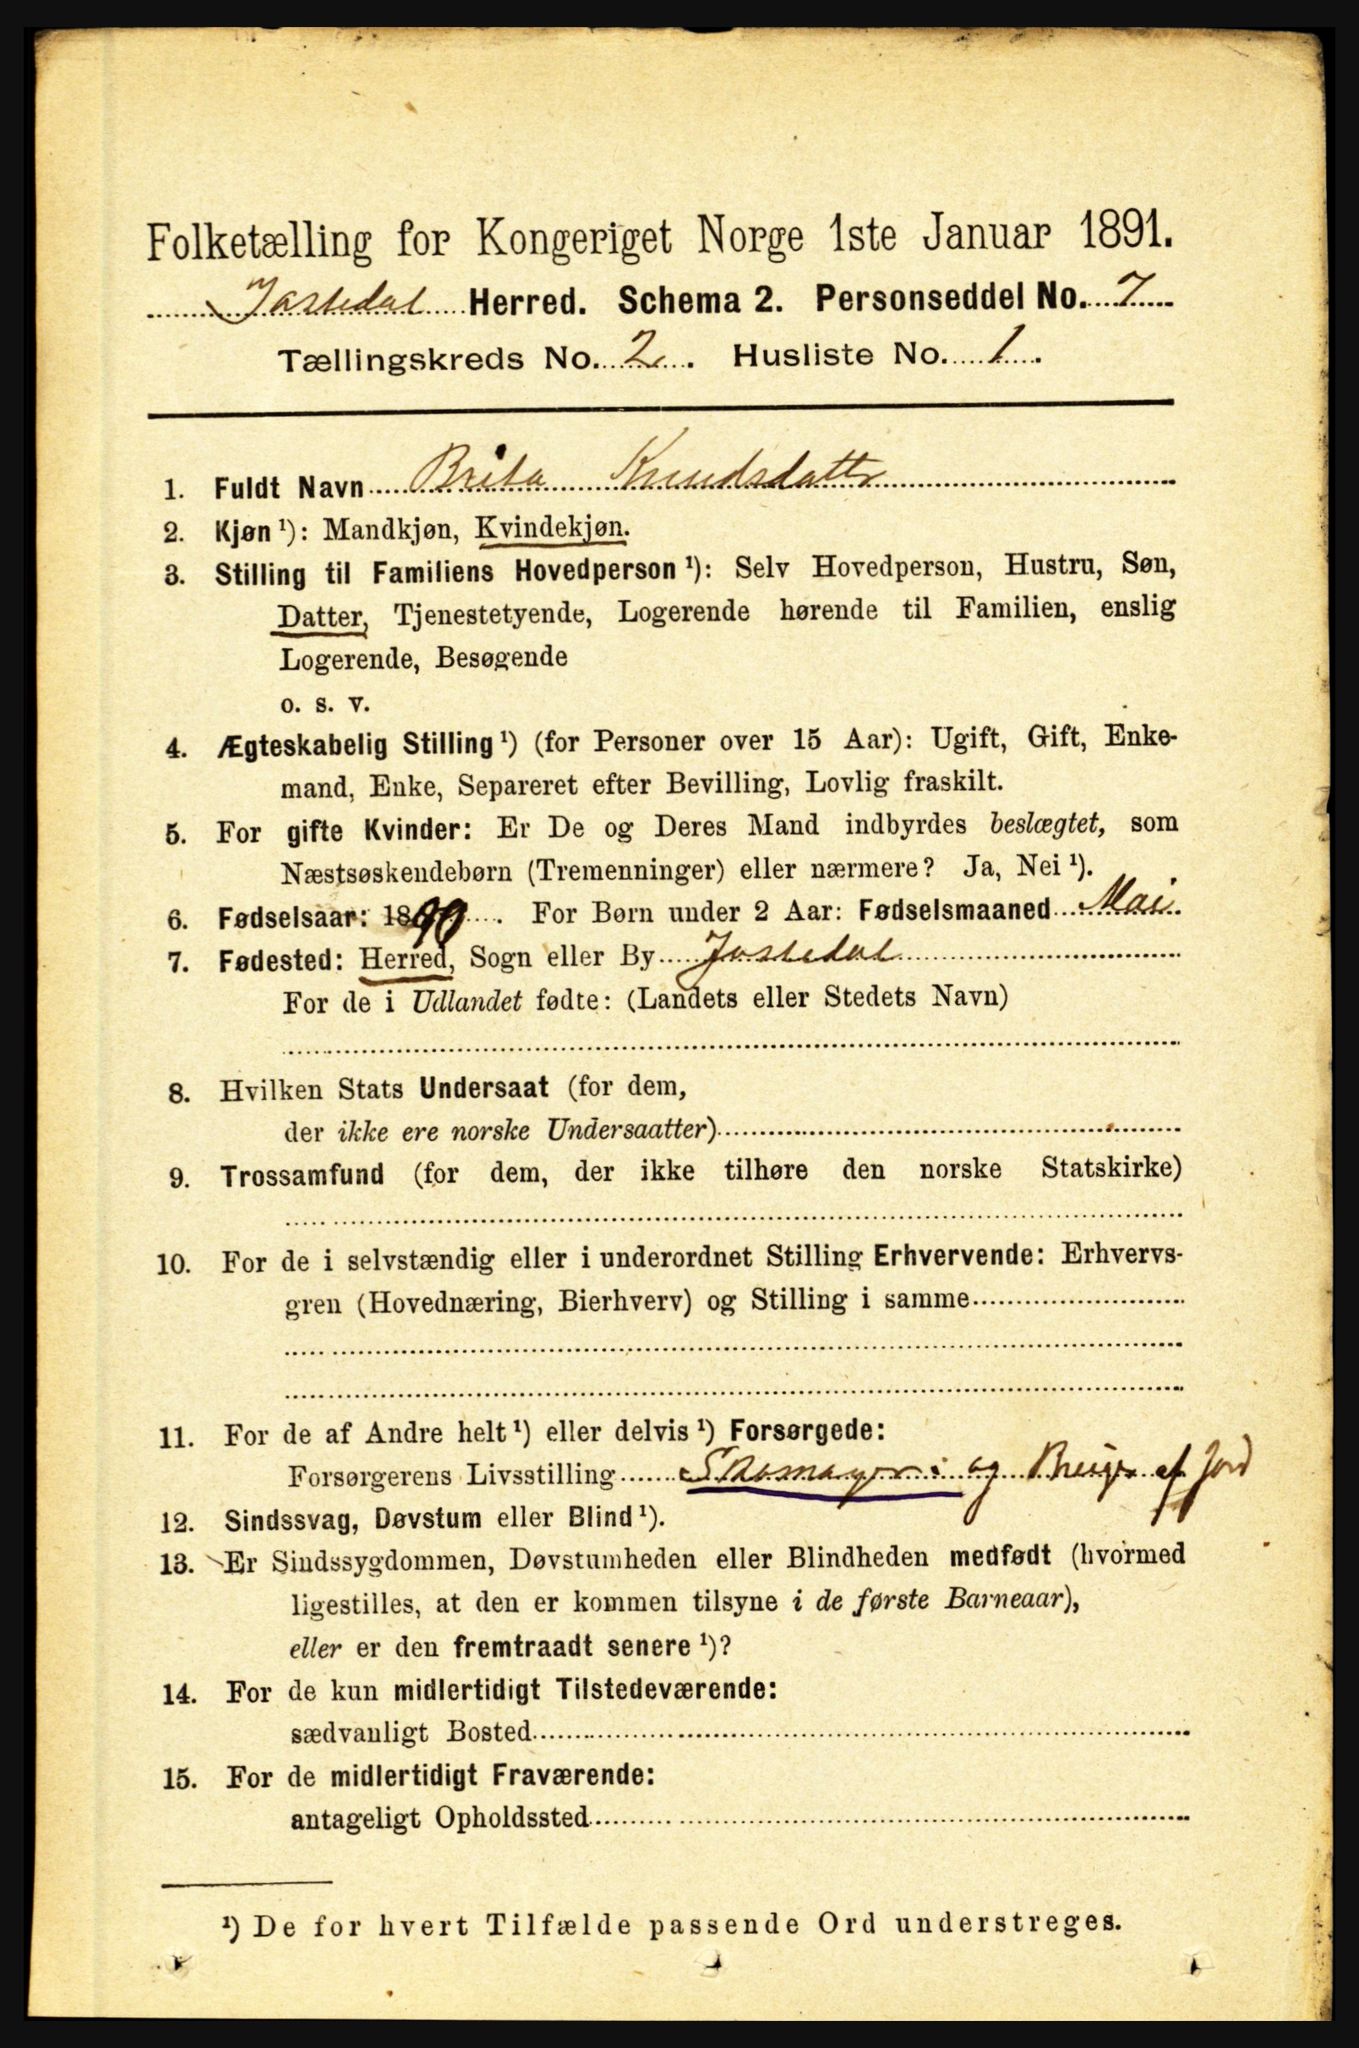 Folketælling for Kongeriget Norge 1ste Januar 1891.
Jostedal Herred. Schema 2. Personseddel No. 7
Tællingskreds No. 2. Husliste No. 1.
1. Fuldt Navn Brita Knudsdatter
2. Kjøn ¹): Mandkjøn, Kvindekjøn.
3. Stilling til Familiens Hovedperson ¹): Selv Hovedperson, Hustru, Søn,
Datter, Tjenestetyende, Logerende hørende til Familien, enslig
Logerende, Besøgende
o. s. v.
4. Ægteskabelig Stilling ¹) (for Personer over 15 Aar): Ugift, Gift, Enke-
mand, Enke, Separeret efter Bevilling, Lovlig fraskilt.
5. For gifte Kvinder: Er De og Deres Mand indbyrdes beslægtet, som
Næstsøskendebørn (Tremenninger) eller nærmere? Ja, Nei ¹).
6. Fødselsaar: 1890. For Børn under 2 Aar: Fødselsmaaned Mai
7. Fødested: Herred, Sogn eller By Jostedal
For de i Udlandet fødte: (Landets eller Stedets Navn)
8. Hvilken Stats Undersaat (for dem,
der ikke ere norske Undersaatter)
9. Trossamfund (for dem, der ikke tilhøre den norske Statskirke)
10. For de i selvstændig eller i underordnet Stilling Erhvervende: Erhvervs-
gren (Hovednæring, Bierhverv) og Stilling i samme
11. For de af Andre helt ¹) eller delvis ¹) Forsørgede:
Forsørgerens Livsstilling Skomager og Bruger af Jord
12. Sindssvag, Døvstum eller Blind ¹).
13. Er Sindssygdommen, Døvstumheden eller Blindheden medfødt (hvormed
ligestilles, at den er kommen tilsyne i de første Barneaar),
eller er den fremtraadt senere ¹)?
14. For de kun midlertidigt Tilstedeværende:
sædvanligt Bosted
15. For de midlertidigt Fraværende:
antageligt Opholdssted
¹) De for hvert Tilfælde passende Ord understreges.